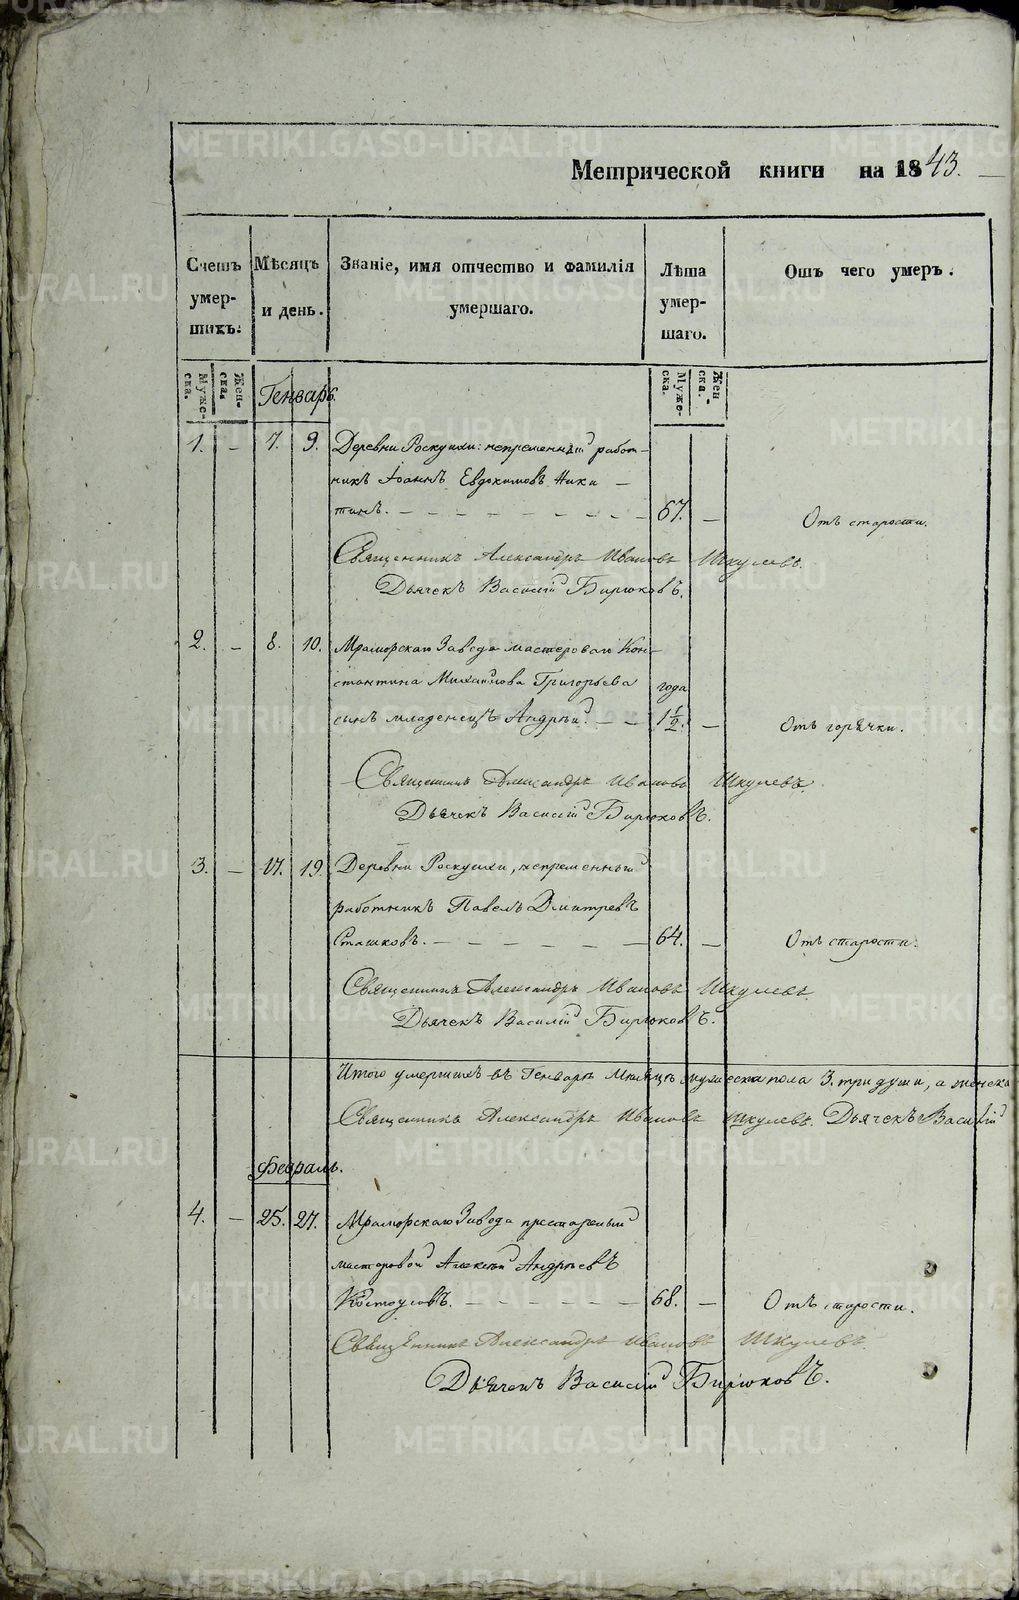 Метрической книги на 1843.
Счетъ умер-шихъ.
Мѣсяцъ и день.
Званіе, имя отчество и фамилія умершаго.
Лѣта умер-шаго.
Отъ чего умеръ.
Муже-ска.
Жен-ска.
Генварь.
Муже-ска.
Жен-ска.
1. – 7. 9. Деревни Роскуихи: непременный работ-
никъ Іоаннъ Евдокимовъ Ники –
тинъ. – – – – – – – – 67. – Отъ старости.
Священникъ Александръ Ивановъ Шкулевъ.
Дьячекъ Василій Бирюковъ.
2. – 8. 10. Мраморскаго Завода мастероваго Кон-
стантина Михайлова Григорьева года
сынъ младенецъ Андрей. – – 1½. – Отъ горячки.
Священникъ Александръ Ивановъ Шкулевъ.
Дьячекъ Василій Бирюковъ.
3. – 17. 19. Деревни Роскуихи, непременный
работникъ Павелъ Дмитревъ
Сташковъ. – – – – – – 64. – Отъ старости.
Священникъ Александръ Ивановъ Шкулевъ.
Дьячекъ Василій Бирюковъ.
Итого умершихъ въ Генварѣ Месяцѣ мужеска пола 3. три души, а женска
Священникъ Александръ Ивановъ Шкулевъ. Дьячекъ Василій
Февраль.
4. – 25. 27. Мраморскаго Завода престарелый
мастеровой Алексѣй Андреевъ
Костоусовъ. – – – – – – 68. – Отъ старости.
Священникъ Александръ Ивановъ Шкулевъ.
Дьячекъ Василій Бирюковъ.
METRIKI.GASO-URAL.RU